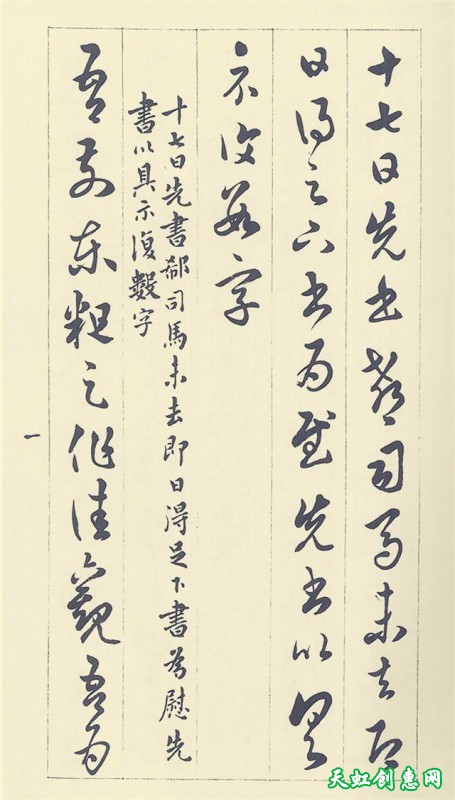 十七日先書郗司馬未去即
日得足下書為慰先書以具
示復數字
十七日先書郗司馬未去即日得足下書為慰先
書以具示復數字
吾前東粗足作佳觀吾為
一
天虹创惠网